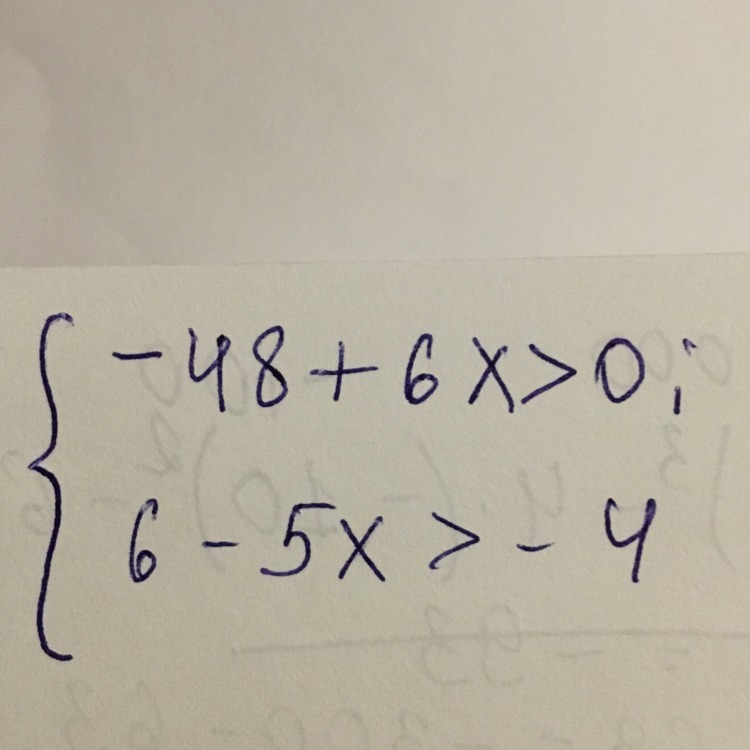 -48+6x>0;
6-5x>-4